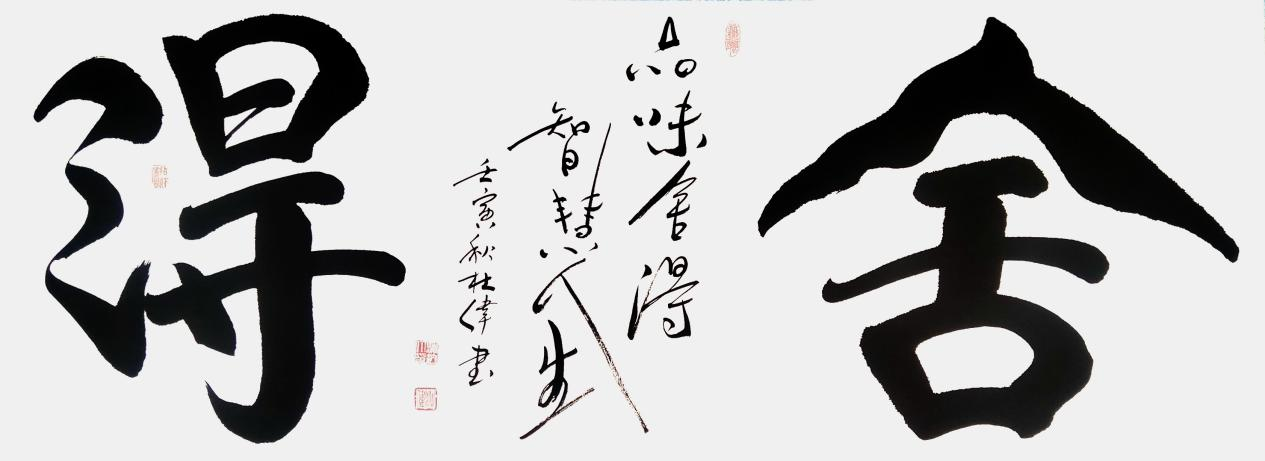 舍
品味舍得
智慧人生
壬寅秋杜偉書
得